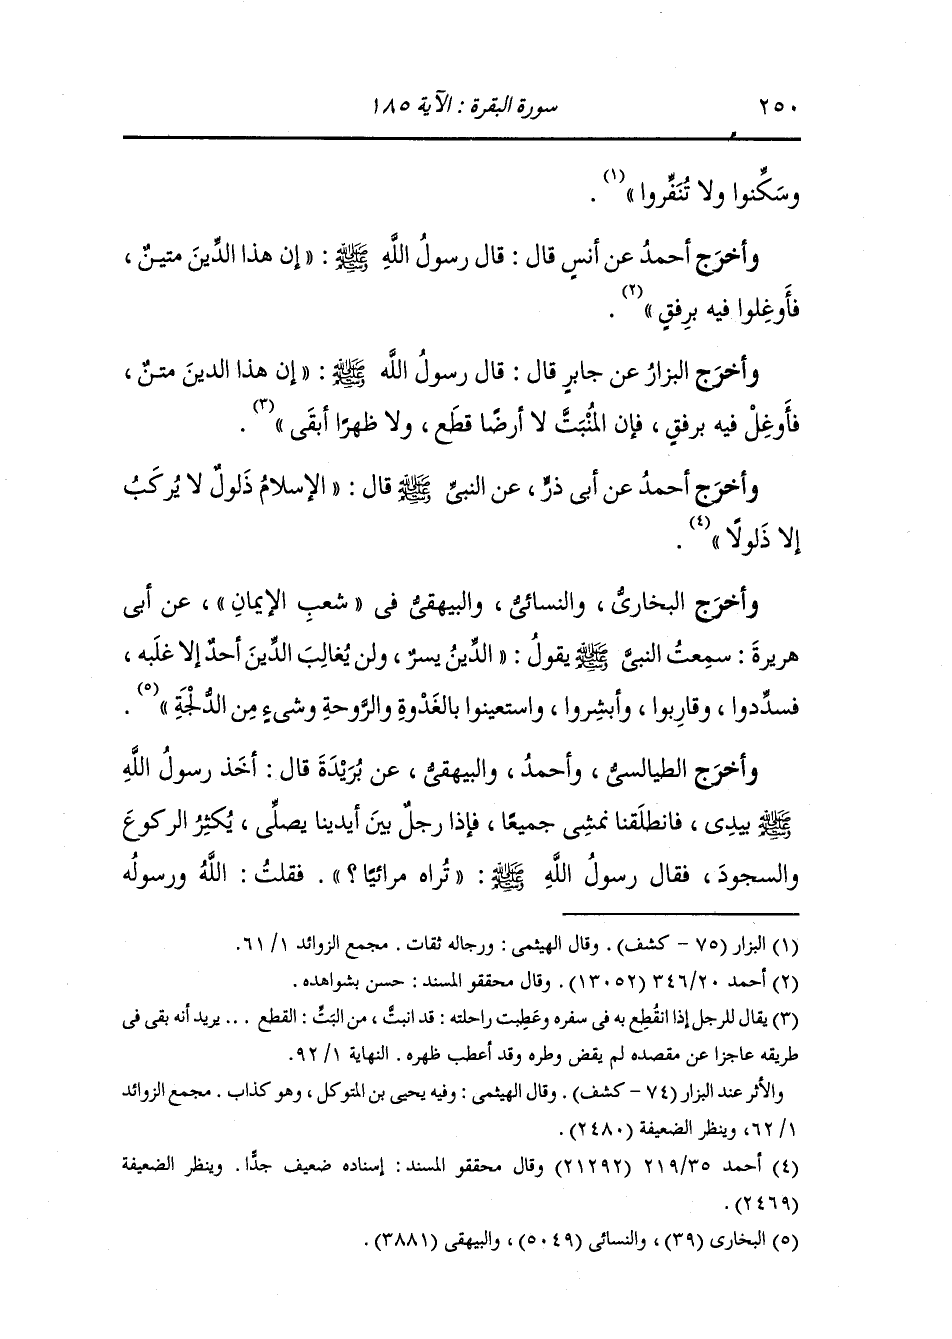 ٢٥٠ سورة البقرة : الآية ١٨٥
وسَكِّنوا ولا تُنَفِّروا »(١) .
وأخرَج أحمدُ عن أنسٍ قال : قال رسولُ اللَّهِ ﷺ : « إن هذا الدِّينَ متينٌ ،
فأَوغِلوا فيه برِفقٍ »(٢) .
وأخرَج البزارُ عن جابرٍ قال : قال رسولُ اللَّه ﷺ : « إن هذا الدينَ متنٌ ،
فأَوغِلْ فيه برفقٍ ، فإن المُنْبَتَّ لا أرضًا قطَع ، ولا ظهرًا أبقَى »(٣) .
وأخرَج أحمدُ عن أبى ذرٍّ ، عن النبىِّ ﷺ قال : « الإسلامُ ذَلولٌ لا يُركَبُ
إلا ذَلولًا »(٤) .
وأخرَج البخارىُّ ، والنسائىُّ ، والبيهقىُّ فى « شعبِ الإيمانِ » ، عن أبى
هريرةَ : سمِعتُ النبىَّ ﷺ يقولُ : « الدِّينُ يسرٌ ، ولن يُغالِبَ الدِّينَ أحدٌ إلا غلَبه ،
فسدِّدوا ، وقارِبوا ، وأبشِروا ، واستعينوا بالغَدْوةِ والرَّوحةِ وشىءٍ مِن الدُّلْجَةِ »(٥) .
وأخرَج الطيالسىُّ ، وأحمدُ ، والبيهقىُّ ، عن بُرَيْدَةَ قال : أخَذ رسولُ اللَّهِ
ﷺ بيدِى ، فانطلَقنا نمشِى جميعًا ، فإذا رجلٌ بينَ أيدينا يصلِّى ، يُكثِرُ الركوعَ
والسجودَ ، فقال رسولُ اللَّهِ ﷺ : « تُراه مرائيًا ؟ » . فقلتُ : اللَّهُ ورسولُه
(١) البزار (٧٥ - كشف) . وقال الهيثمى : ورجاله ثقات . مجمع الزوائد ١/ ٦١.
(٢) أحمد ٣٤٦/٢٠ (١٣٠٥٢) . وقال محققو المسند : حسن بشواهده .
(٣) يقال للرجل إذا انقُطِع به فى سفره وعَطِبت راحلته : قد انبتَّ ، من البَتِّ : القطع ... يريد أنه بقى فى
طريقه عاجزا عن مقصده لم يقض وطره وقد أعطب ظهره . النهاية ١/ ٩٢.
والأثر عند البزار (٧٤ - كشف) . وقال الهيثمى : وفيه يحيى بن المتوكل ، وهو كذاب . مجمع الزوائد
١/ ٦٢، وينظر الضعيفة (٢٤٨٠) .
(٤) أحمد ٢١٩/٣٥ (٢١٢٩٢) وقال محققو المسند : إسناده ضعيف جدًّا . وينظر الضعيفة
(٢٤٦٩) .
(٥) البخارى (٣٩) ، والنسائى (٥٠٤٩) ، والبيهقى (٣٨٨١) .